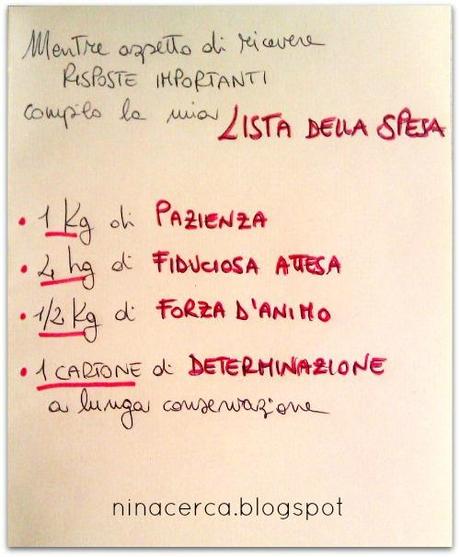 Mentre aspetto di ricevere
RISPOSTE IMPORTANTI
compilo la mia LISTA DELLA SPESA
• 1 Kg di PAZIENZA
• 2 hg di FIDUCIOSA ATTESA
• 1/2 Kg di FORZA D'ANIMO
• 1 CARTONE di DETERMINAZIONE
a lunga conservazione
ninacerca.blogspot